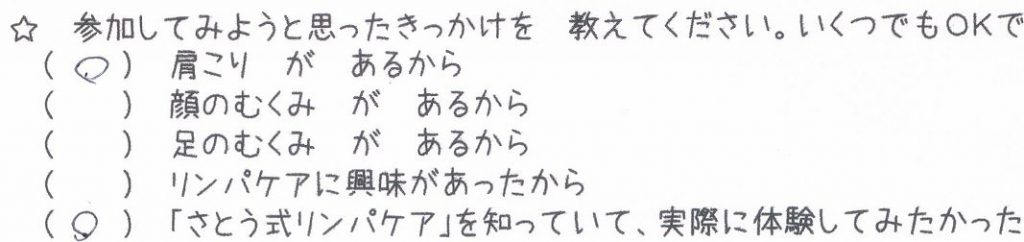 ☆ 参加してみようと思ったきっかけを 教えてください。いくつでもOKで
(○) 肩こり が あるから
( ) 顔のむくみ が あるから
( ) 足のむくみ が あるから
( ) リンパケアに興味があったから
(○) 「さとう式リンパケア」を知っていて、実際に体験してみたかった